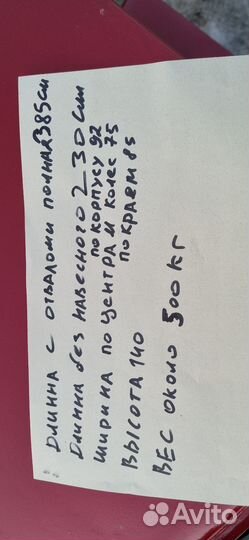 ДЛИННА С ОТВАЛОМИ ПОЛНАЯ 385см
Длинна без НАВЕСНОГО 230см
по корпусу 92
Ширина по центра м колес 75
по краем 85
ВЫСОТА 140
ВЕС ОКОЛО 500кг
Avito